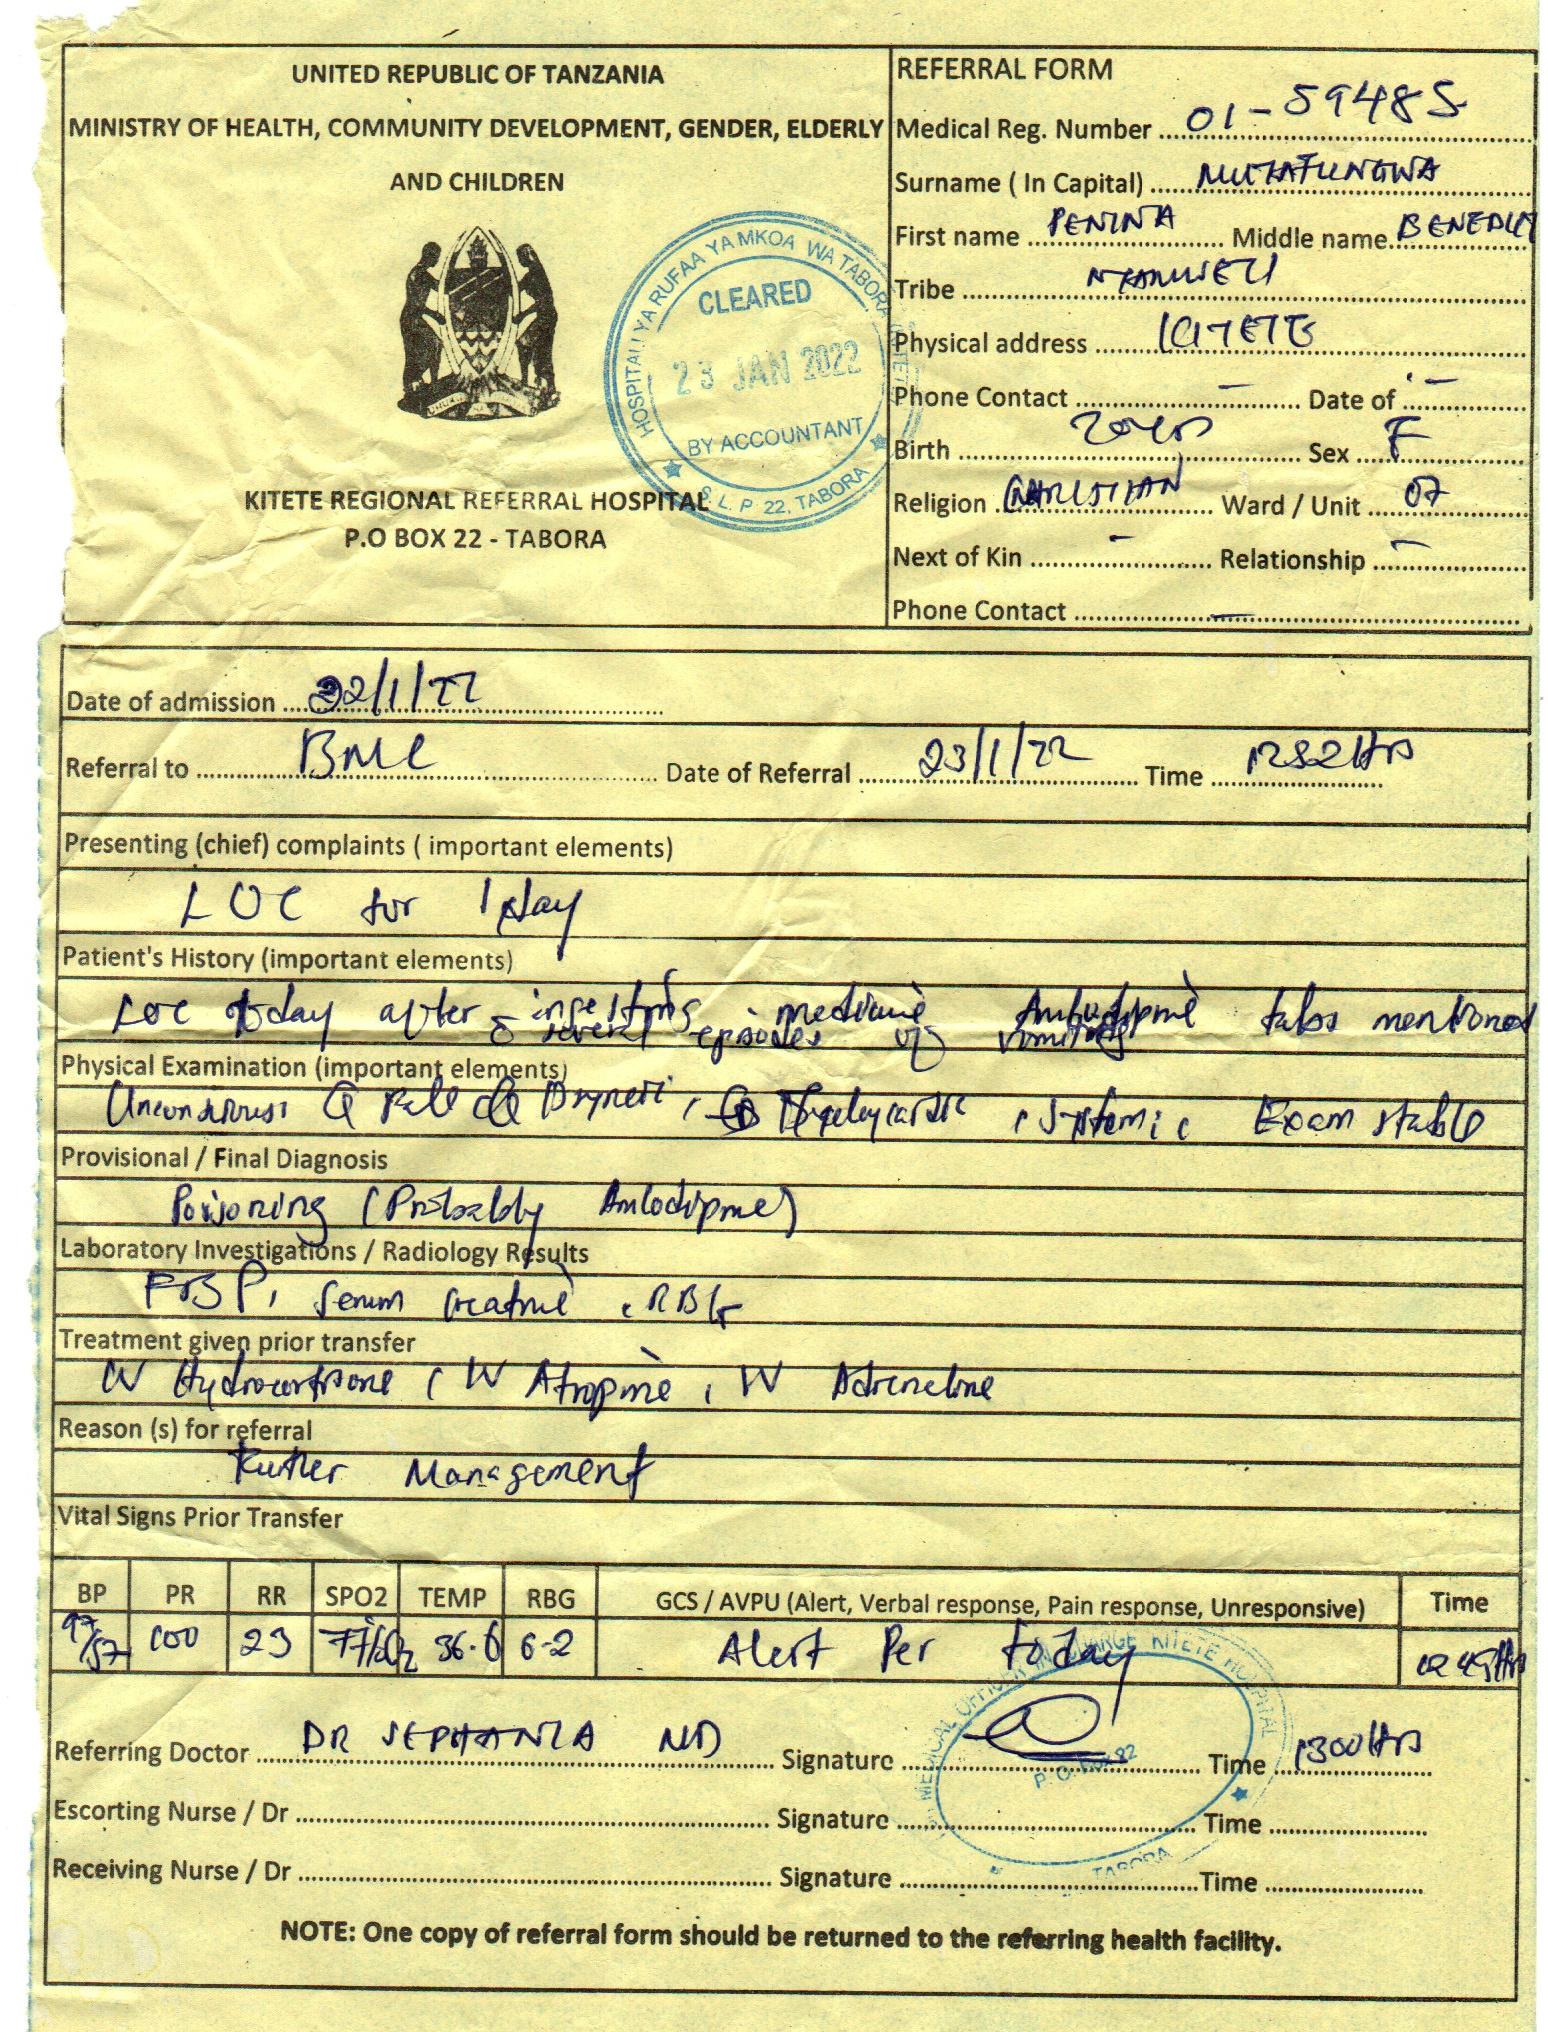 UNITED REPUBLIC OF TANZANIA
MINISTRY OF HEALTH, COMMUNITY DEVELOPMENT, GENDER, ELDERLY
AND CHILDREN
HOSPITALI YA RUFAA YA MKOA WA TABORA
CLEARED
23 JAN 2022
BY ACCOUNTANT
S. L. P 22, TABORA
KITETE REGIONAL REFERRAL HOSPITAL
P.O BOX 22 - TABORA
REFERRAL FORM
Medical Reg. Number 01-59485
Surname ( In Capital) MUTAFUNGWA
First name PENINA Middle name BENEDICT
Tribe
Physical address KITETE
Phone Contact – Date of –
Birth 20yrs Sex F
Religion CHRISTIAN Ward / Unit 07
Next of Kin – Relationship –
Phone Contact –
Date of admission 22/1/22
Referral to BMC Date of Referral 23/1/22 Time
Presenting (chief) complaints ( important elements)
LOC for 1 day
Patient's History (important elements)
LOC today after ingesting medicine Amlodipine tabs mentioned
several episodes of vomiting
Physical Examination (important elements)
Unconscious pale Tachycardic, Systemic Exam stable
Provisional / Final Diagnosis
Poisoning (Probably Amlodipine)
Laboratory Investigations / Radiology Results
FBP, Serum creatine, RBG
Treatment given prior transfer
IV Hydrocortisone, IV Atropine, IV Adrenaline
Reason (s) for referral
Further Management
Vital Signs Prior Transfer
BP PR RR SPO2 TEMP RBG GCS / AVPU (Alert, Verbal response, Pain response, Unresponsive) Time
97/57 100 23 36.6 6.2 Alert Per today 1245Hrs
MEDICAL OFFICER IN CHARGE KITETE HOSPITAL
TABORA
Referring Doctor DR SEPHANIA MD Signature Time 1300Hrs
Escorting Nurse / Dr Signature Time
Receiving Nurse / Dr Signature Time
NOTE: One copy of referral form should be returned to the referring health facility.